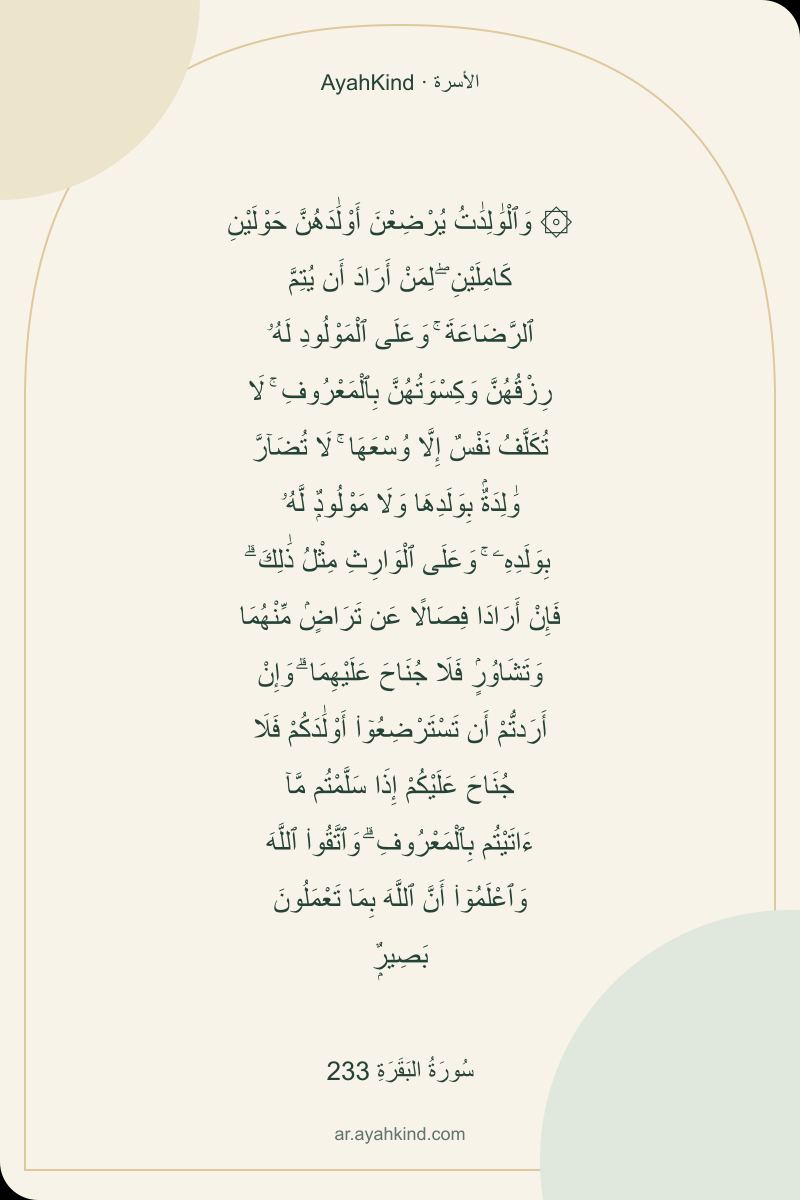 AyahKind · الأسرة
۞ وَٱلْوَٰلِدَٰتُ يُرْضِعْنَ أَوْلَٰدَهُنَّ حَوْلَيْنِ
كَامِلَيْنِ ۖ لِمَنْ أَرَادَ أَن يُتِمَّ
ٱلرَّضَاعَةَ ۚ وَعَلَى ٱلْمَوْلُودِ لَهُۥ
رِزْقُهُنَّ وَكِسْوَتُهُنَّ بِٱلْمَعْرُوفِ ۚ لَا
تُكَلَّفُ نَفْسٌ إِلَّا وُسْعَهَا ۚ لَا تُضَآرَّ
وَٰلِدَةٌۢ بِوَلَدِهَا وَلَا مَوْلُودٌۭ لَّهُۥ
بِوَلَدِهِۦ ۚ وَعَلَى ٱلْوَارِثِ مِثْلُ ذَٰلِكَ ۗ
فَإِنْ أَرَادَا فِصَالًا عَن تَرَاضٍۢ مِّنْهُمَا
وَتَشَاوُرٍۢ فَلَا جُنَاحَ عَلَيْهِمَا ۗ وَإِنْ
أَرَدتُّمْ أَن تَسْتَرْضِعُوٓا۟ أَوْلَٰدَكُمْ فَلَا
جُنَاحَ عَلَيْكُمْ إِذَا سَلَّمْتُم مَّآ
ءَاتَيْتُم بِٱلْمَعْرُوفِ ۗ وَٱتَّقُوا۟ ٱللَّهَ
وَٱعْلَمُوٓا۟ أَنَّ ٱللَّهَ بِمَا تَعْمَلُونَ
بَصِيرٌۭ
سُورَةُ البَقَرَةِ 233
ar.ayahkind.com